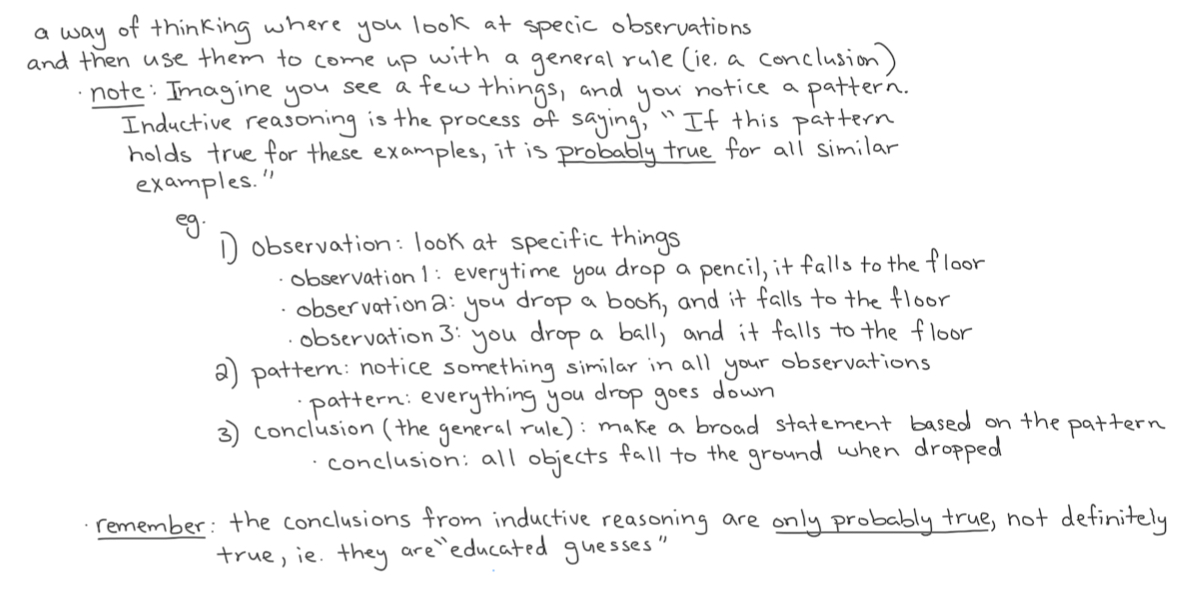 a way of thinking where you look at specic observations
and then use them to come up with a general rule (ie. a conclusion)
· note: Imagine you see a few things, and you notice a pattern.
Inductive reasoning is the process of saying, "If this pattern
holds true for these examples, it is probably true for all similar
examples."
eg.
1) observation: look at specific things
· observation 1: everytime you drop a pencil, it falls to the floor
· observation 2: you drop a book, and it falls to the floor
· observation 3: you drop a ball, and it falls to the floor
2) pattern: notice something similar in all your observations
· pattern: everything you drop goes down
3) conclusion (the general rule): make a broad statement based on the pattern
· conclusion: all objects fall to the ground when dropped
· remember: the conclusions from inductive reasoning are only probably true, not definitely
true, ie. they are "educated guesses"